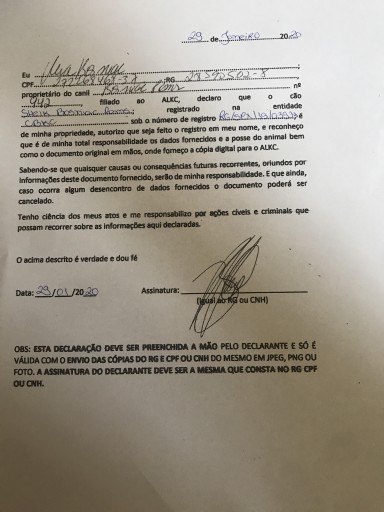 29 de Janeiro 2020
Eu
CPF RG 28.590.502-8
proprietário do canil nº
942, filiado ao ALKC, declaro que o cão
registrado na entidade
sob o número de registro é
de minha propriedade, autorizo que seja feito o registro em meu nome, e reconheço
que é de minha total responsabilidade os dados fornecidos e a posse do animal bem
como o documento original em mãos, onde forneço a cópia digital para o ALKC.
Sabendo-se que quaisquer causas ou consequências futuras recorrentes, oriundos por
informações deste documento fornecido, serão de minha responsabilidade. E que ainda,
caso ocorra algum desencontro de dados fornecidos o documento poderá ser
cancelado.
Tenho ciência dos meus atos e me responsabilizo por ações cíveis e criminais que
possam recorrer sobre as informações aqui declaradas.
O acima descrito é verdade e dou fé
Data: 29/01/2020 Assinatura:
(Igual ao RG ou CNH)
OBS: ESTA DECLARAÇÃO DEVE SER PREENCHIDA A MÃO PELO DECLARANTE E SÓ É
VÁLIDA COM O ENVIO DAS CÓPIAS DO RG E CPF OU CNH DO MESMO EM JPEG, PNG OU
FOTO. A ASSINATURA DO DECLARANTE DEVE SER A MESMA QUE CONSTA NO RG CPF
OU CNH.